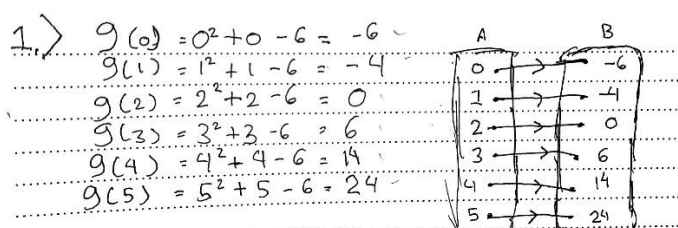 1.) g(0) = 0² + 0 - 6 = -6
g(1) = 1² + 1 - 6 = -4
g(2) = 2² + 2 - 6 = 0
g(3) = 3² + 3 - 6 = 6
g(4) = 4² + 4 - 6 = 14
g(5) = 5² + 5 - 6 = 24
A B
0 -6
1 -4
2 0
3 6
4 14
5 24